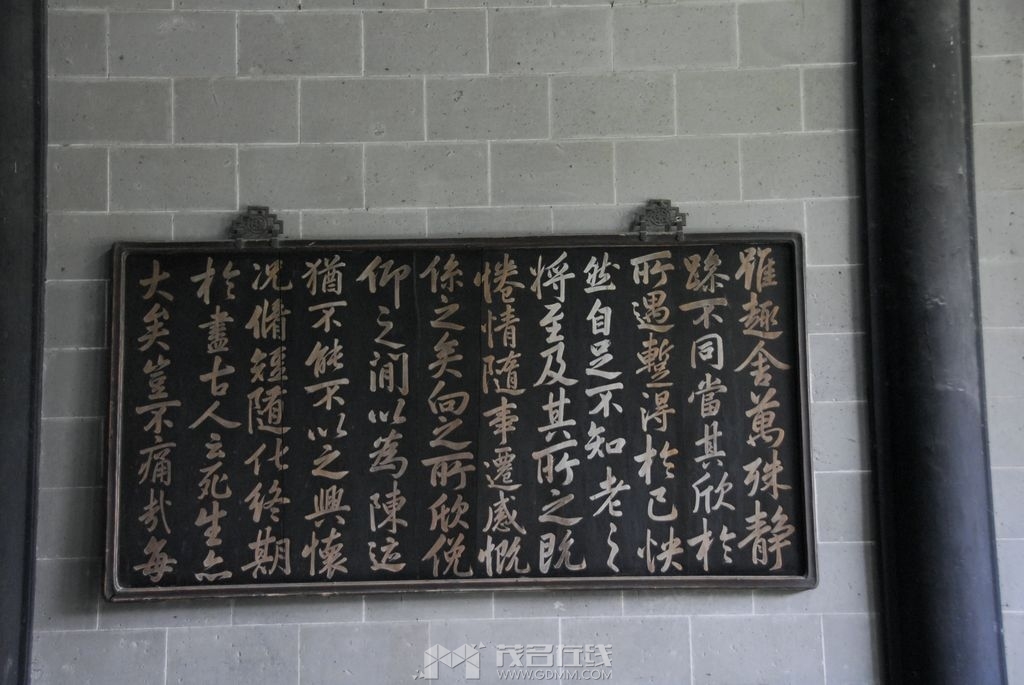 雖趣舍萬殊静
躁不同當其欣於
所遇暫得於己快
然自足不知老之
將至及其所之既
惓情隨事遷感慨
係之矣向之所欣俛
仰之間以為陳迹
猶不能不以之興懷
况脩短隨化終期
於盡古人云死生亦
大矣豈不痛哉每
茂名在线
WWW.GDMM.COM